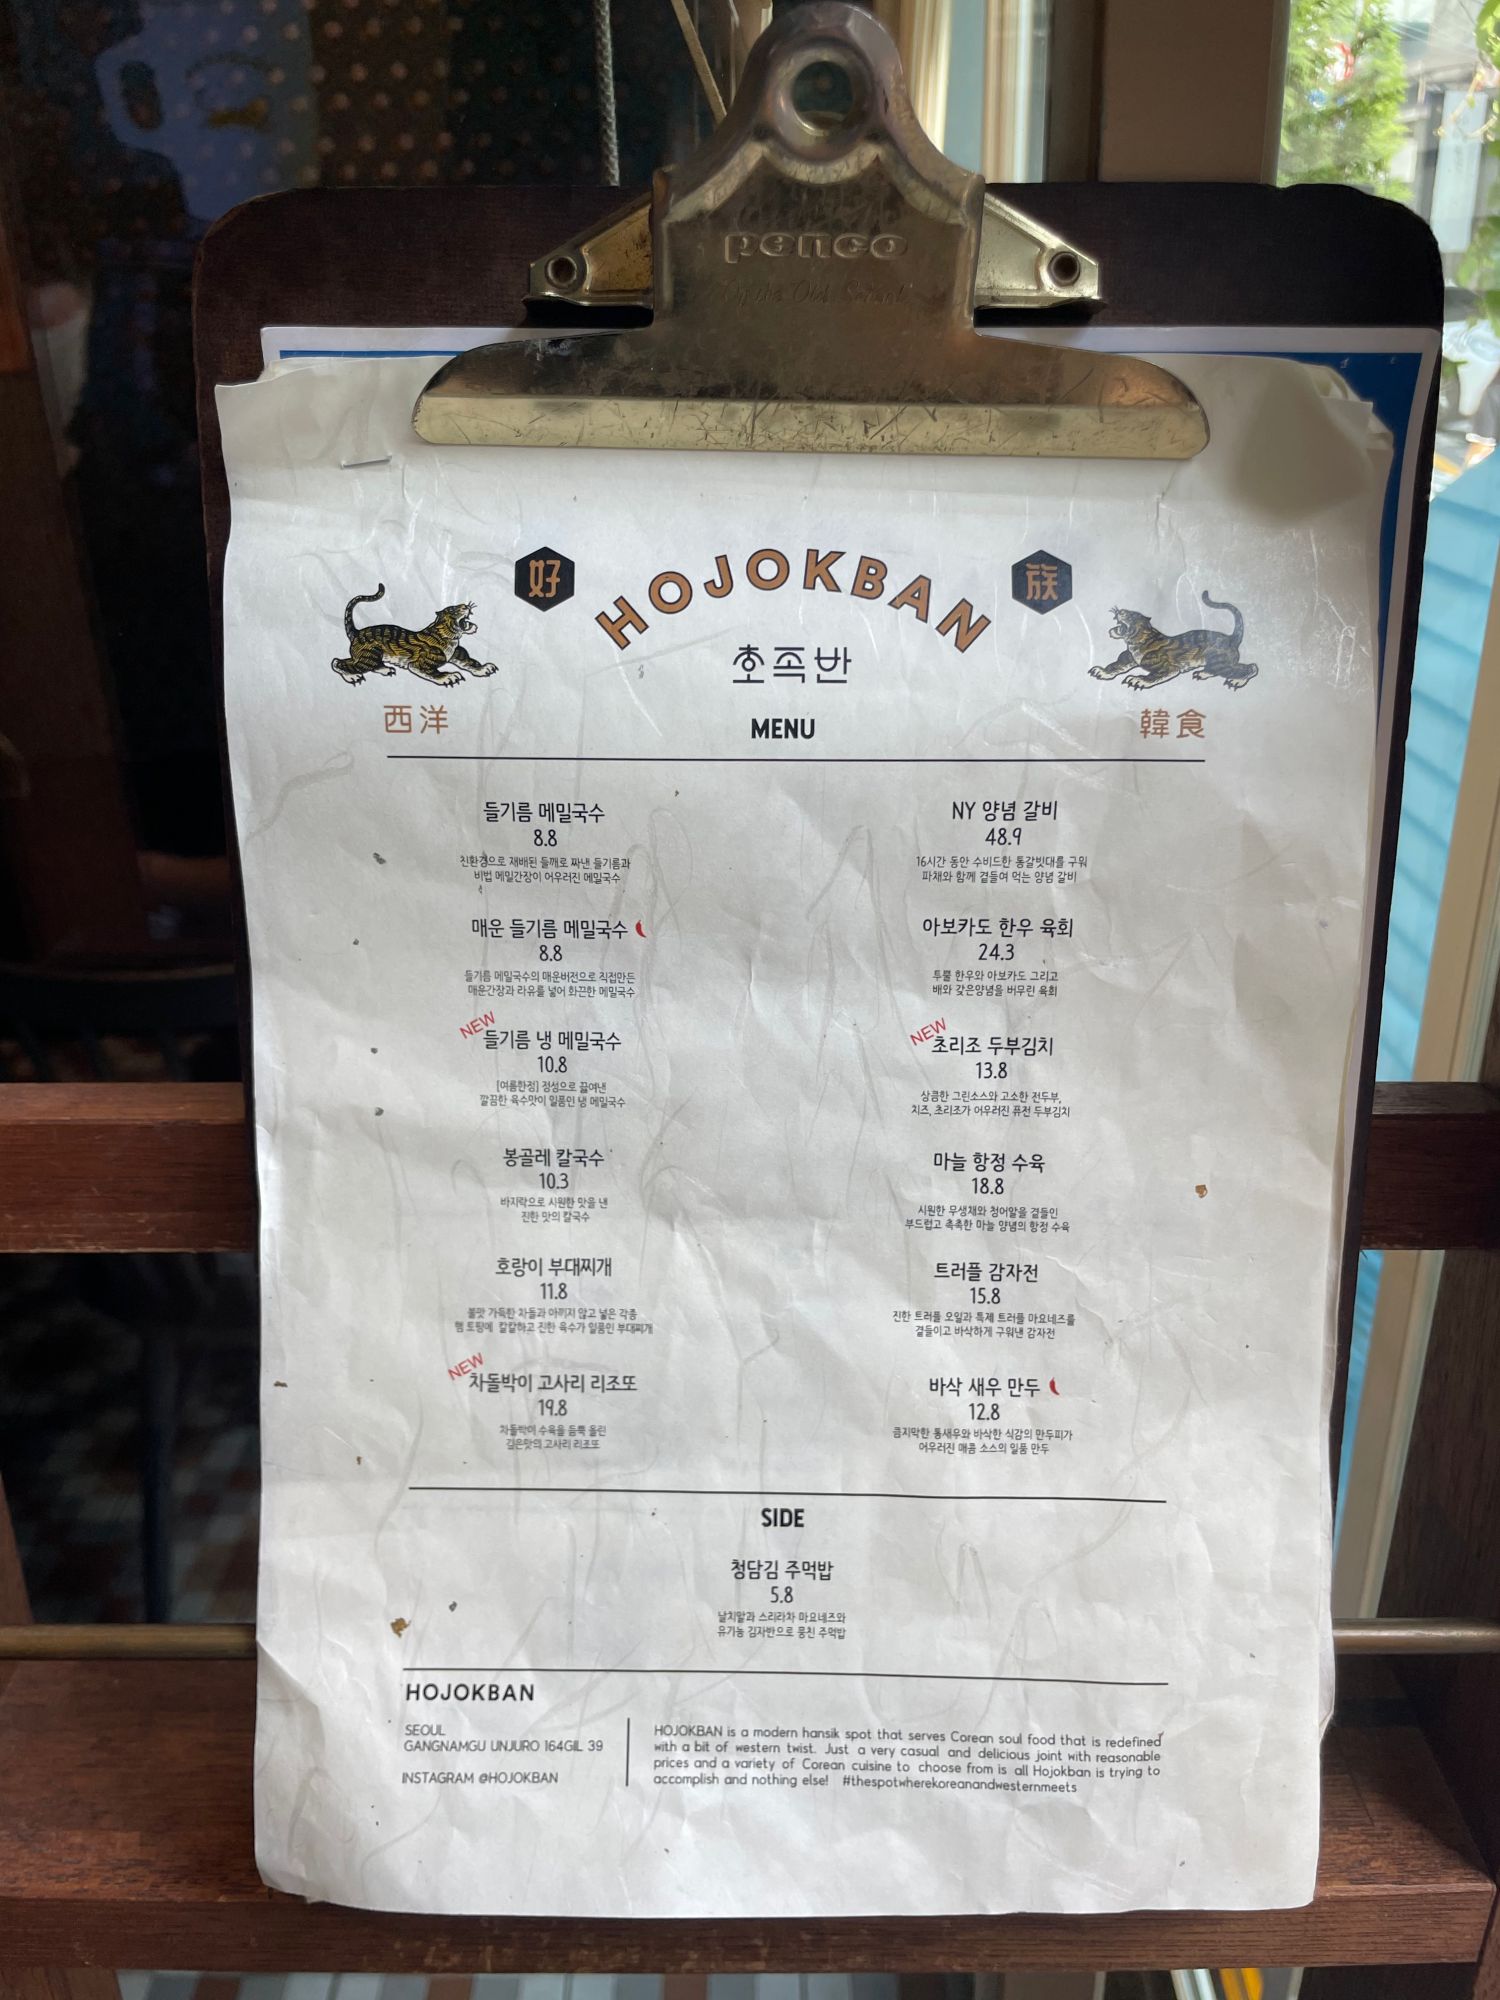 penco
好
HOJOKBAN
族
호족반
西洋
MENU
韓食
들기름 메밀국수
8.8
친환경으로 재배된 들깨로 짜낸 들기름과
비법 메밀간장이 어우러진 메밀국수
매운 들기름 메밀국수
8.8
들기름 메밀국수의 매운버전으로 직접만든
매운간장과 라유를 넣어 화끈한 메밀국수
NEW
들기름 냉 메밀국수
10.8
[여름한정] 정성으로 끓여낸
깔끔한 육수맛이 일품인 냉 메밀국수
봉골레 칼국수
10.3
바지락으로 시원한 맛을 낸
진한 맛의 칼국수
호랑이 부대찌개
11.8
불맛 가득한 차돌과 아끼지 않고 넣은 각종
햄 토핑에 칼칼하고 진한 육수가 일품인 부대찌개
NEW
차돌박이 고사리 리조또
19.8
차돌박이 수육을 듬뿍 올린
깊은맛의 고사리 리조또
NY 양념 갈비
48.9
16시간 동안 수비드한 통갈빗대를 구워
파채와 함께 곁들여 먹는 양념 갈비
아보카도 한우 육회
24.3
투뿔 한우와 아보카도 그리고
배와 갖은양념을 버무린 육회
NEW
초리조 두부김치
13.8
상큼한 그린소스와 고소한 전두부,
치즈, 초리조가 어우러진 퓨전 두부김치
마늘 항정 수육
18.8
시원한 무생채와 청어알을 곁들인
부드럽고 촉촉한 마늘 양념의 항정 수육
트러플 감자전
15.8
진한 트러플 오일과 특제 트러플 마요네즈를
곁들이고 바삭하게 구워낸 감자전
바삭 새우 만두
12.8
큼지막한 통새우와 바삭한 식감의 만두피가
어우러진 매콤 소스의 일품 만두
SIDE
청담김 주먹밥
5.8
날치알과 스리라차 마요네즈와
유기농 김자반으로 뭉친 주먹밥
HOJOKBAN
SEOUL
GANGNAMGU UNJURO 164GIL 39
INSTAGRAM @HOJOKBAN
HOJOKBAN is a modern hansik spot that serves Corean soul food that is redefined
with a bit of western twist. Just a very casual and delicious joint with reasonable
prices and a variety of Corean cuisine to choose from is all Hojokban is trying to
accomplish and nothing else! #thespotwherekoreanandwesternmeets